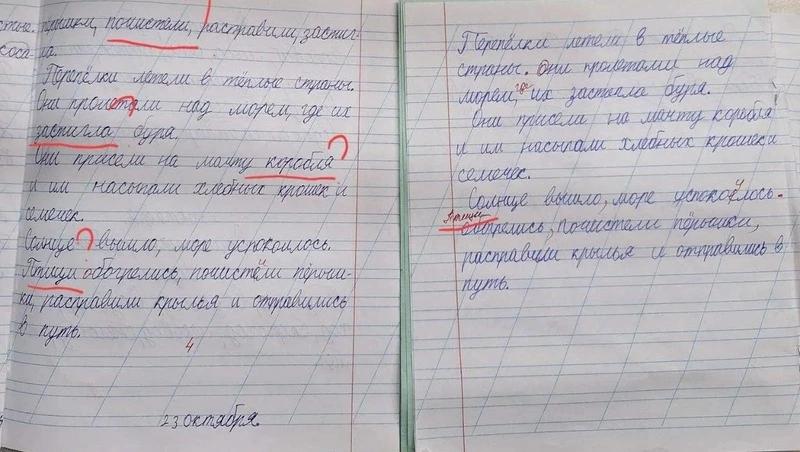 тые. пёрышки, почистели, расправили, застиг-
коса ла.
Перепёлки летели в тёплые страны.
Они пролетали над морем, где их
застигла буря.
Они присели на мачту коробля?
и им насыпали хлебных крошек и
семечек.
Солнце? вышло, море успокоилось.
Птици обогрелись, почистели пёрыш-
ки, расправили крылья и отправились
в путь.
4
23 октября.
Перепёлки летели в тёплые
страны. Они пролетали над
морем, где их застала буря.
Они присели на мачту коробля
и им насыпали хлебных крошек и
семечек.
Солнце вышло, море успокоилось.
Птици
обогрелись, почистели пёрышки,
расправили крылья и отправились в
путь.